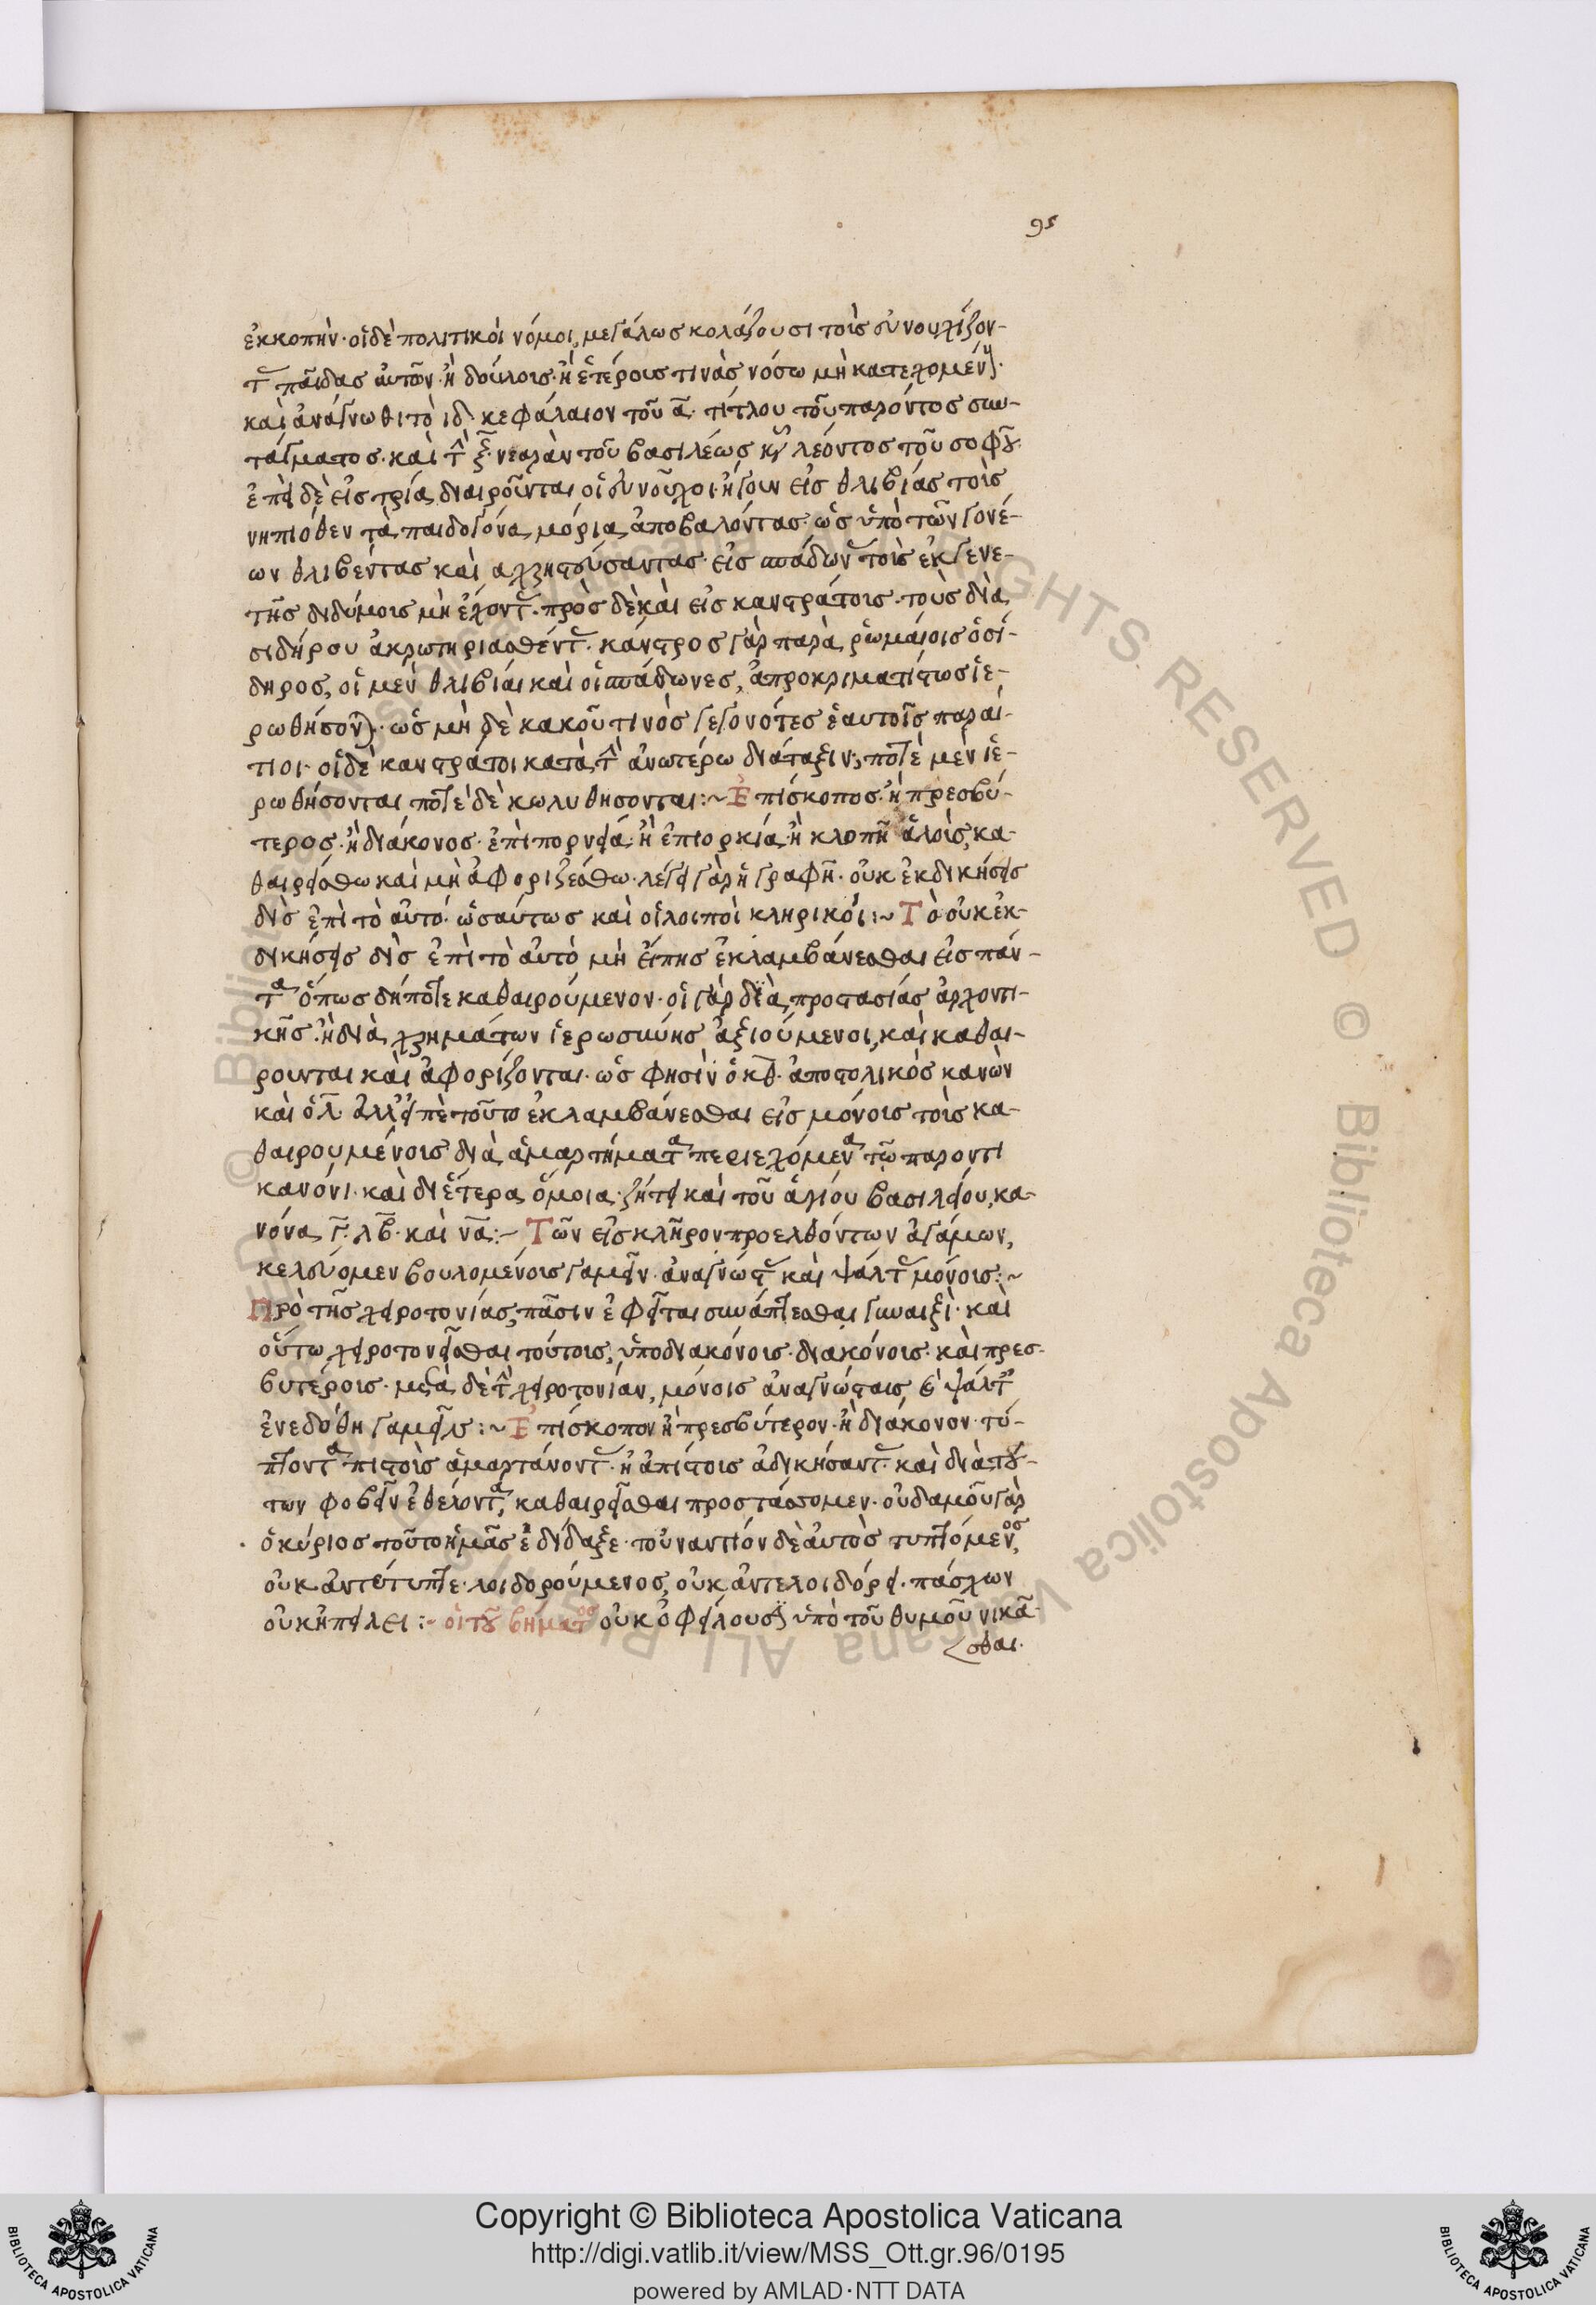 95
ἐκκοπήν· οἱ δὲ πολιτικοὶ νόμοι, μεγάλως κολάζουσι τοὺς εὐνουχίζον-
τας παῖδας αὐτῶν· ἢ δούλους· ἢ ἑτέρους τινὰς νόσω μὴ κατεχομένους·
καὶ ἀνάγνωθι τὸ ιδ κεφάλαιον τοῦ α τίτλου τοῦ παρόντος συν-
τάγματος· καὶ τὴν ξ νεαρὰν τοῦ βασιλέως κυροῦ λέοντος τοῦ σοφοῦ·
ἐπεὶ δὲ εἰς τρία διαιροῦνται οἱ εὐνοῦχοι· ἤγουν εἰς θλιβίας τοὺς
νηπιόθεν τὰ παιδογόνα μόρια ἀποβαλόντας· ὡς ὑπὸ τῶν γονέ-
ων θλιβέντας καὶ ἀχρηστεύσαντας· εἰς σπάδωνας τοὺς ἐκ γενε-
τῆς διδύμους μὴ ἔχοντας· πρὸς δὲ καὶ εἰς καστράτους· τοὺς διὰ
σιδήρου ἀκρωτηριασθέντας· κάστρος γὰρ παρὰ ῥωμαίοις ὁ σί-
δηρος, οἱ μὲν θλιβίαι καὶ οἱ σπάδωνες, ἀπροκριματίστως ἱε-
ρωθήσονται· ὡς μὴ δὲ κακοῦ τινὸς γεγονότες ἑαυτοῖς παραί-
τιοι· οἱ δὲ καστράτοι κατὰ τὴν ἀνωτέρω διάταξιν, ποτὲ μὲν ἱε-
ρωθήσονται ποτὲ δὲ κωλυθήσονται:~ Ἐπίσκοπος· ἢ πρεσβύ-
τερος· ἢ διάκονος· ἐπὶ πορνεία· ἢ ἐπιορκία· ἢ κλοπῆ ἁλοὺς, κα-
θαιρείσθω καὶ μὴ ἀφοριζέσθω· λέγει γὰρ ἡ γραφή· οὐκ ἐκδικήσεις
δὶς ἐπὶ τὸ αὐτό· ὡσαύτως καὶ οἱ λοιποὶ κληρικοί:~ Τὸ οὐκ ἐκ-
δικήσεις δὶς ἐπὶ τὸ αὐτὸ μὴ εἴπης ἐκλαμβάνεσθαι εἰς πάν-
τα ὅπως δήποτε καθαιρούμενον· οἱ γὰρ διὰ προστασίας ἀρχοντι-
κῆς· ἢ διὰ χρημάτων ἱερωσύνης ἀξιούμενοι, καὶ καθαι-
ροῦνται καὶ ἀφορίζονται· ὡς φησὶν ὁ κθ ἀποστολικὸς κανὼν
καὶ ὁ λ· ἀλλ' εἰπὲ τοῦτο ἐκλαμβάνεσθαι εἰς μόνους τοὺς κα-
θαιρουμένους διὰ ἁμαρτήματα περιεχόμενα τῶ παρόντι
κανόνι· καὶ δι' ἕτερα ὅμοια· ζήτει καὶ τοῦ ἁγίου βασιλείου, κα-
νόνα γ· λβ· καὶ να:~ Τῶν εἰς κλῆρον προελθόντων ἀγάμων,
κελεύομεν βουλομένους γαμεῖν· ἀναγνώστας καὶ ψάλτας μόνους:~
Πρὸ τῆς χειροτονίας, πᾶσιν ἐφεῖται συνάπτεσθαι γυναιξί· καὶ
οὕτω χειροτονεῖσθαι τούτοις, ὑποδιακόνοις· διακόνοις· καὶ πρεσ-
βυτέροις· μετὰ δὲ τὴν χειροτονίαν, μόνοις ἀναγνώσταις καὶ ψάλταις
ἐνεδόθη γαμεῖν:~ Ἐπίσκοπον ἢ πρεσβύτερον· ἢ διάκονον· τύ-
πτοντα πιστοὺς ἁμαρτάνοντας· ἢ ἀπίστους ἀδικήσαντας· καὶ διὰ τού-
των φοβεῖν ἐθέλοντα, καθαιρεῖσθαι προστάσσομεν· οὐδαμοῦ γὰρ
ὁ κύριος τοῦτο ἡμᾶς ἐδίδαξε· τοὐναντίον δὲ αὐτὸς τυπτόμενος,
οὐκ ἀντέτυπτε· λοιδορούμενος, οὐκ ἀντελοιδόρει· πάσχων
οὐκ ἠπείλει:~ οἱ τοῦ βήματος οὐκ ὀφείλουσιν ὑπὸ τοῦ θυμοῦ νικᾶ-
σθαι·
© Biblioteca Apostolica Vaticana ALL RIGHTS RESERVED © Biblioteca Apostolica Vaticana ALL RIGHTS RESERVED
Copyright © Biblioteca Apostolica Vaticana
http://digi.vatlib.it/view/MSS_Ott.gr.96/0195
powered by AMLAD·NTT DATA
BIBLIOTECA APOSTOLICA VATICANA
BIBLIOTECA APOSTOLICA VATICANA